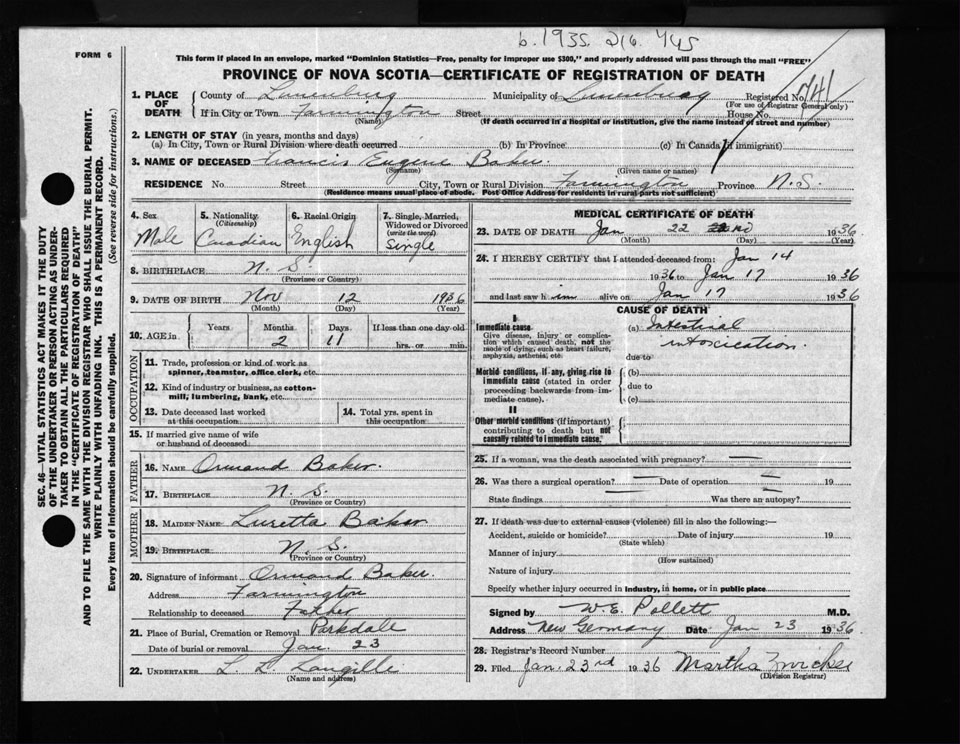 b. 1935. 216. 745
FORM 6
This form if placed in an envelope, marked "Dominion Statistics—Free, penalty for improper use $300," and properly addressed will pass through the mail "FREE"
PROVINCE OF NOVA SCOTIA—CERTIFICATE OF REGISTRATION OF DEATH
1. PLACE OF DEATH
County of Lunenburg Municipality of Lunenburg Registered No. 741
(For use of Registrar General only)
If in City or Town Farmington Street House No.
(Name) (If death occurred in a hospital or institution, give the name instead of street and number)
2. LENGTH OF STAY (in years, months and days)
(a) In City, Town or Rural Division where death occurred (b) In Province (c) In Canada (if immigrant)
3. NAME OF DECEASED Francis Eugene Baker
(Surname) (Given name or names)
RESIDENCE No. Street City, Town or Rural Division Farmington Province N.S.
(Residence means usual place of abode. Post Office Address for residents in rural parts not sufficient)
4. Sex
Male
5. Nationality (Citizenship)
Canadian
6. Racial Origin
English
7. Single, Married, Widowed or Divorced (write the word)
Single
8. BIRTHPLACE N. S.
(Province or Country)
9. DATE OF BIRTH Nov 12 1936
(Month) (Day) (Year)
10. AGE in Years Months Days If less than one day old
2 11 hrs. or min.
OCCUPATION
11. Trade, profession or kind of work as spinner, teamster, office clerk, etc.
12. Kind of industry or business, as cotton-mill, lumbering, bank, etc.
13. Date deceased last worked at this occupation
14. Total yrs. spent in this occupation
15. If married give name of wife or husband of deceased
FATHER
16. NAME Ormand Baker.
17. BIRTHPLACE N. S.
(Province or Country)
MOTHER
18. MAIDEN NAME Luretta Baker
19. BIRTHPLACE N. S.
(Province or Country)
20. Signature of informant Ormand Baker.
Address Farmington
Relationship to deceased Father
21. Place of Burial, Cremation or Removal Parkdale
Date of burial or removal Jan. 23
22. UNDERTAKER L. L. Langille
(Name and address)
MEDICAL CERTIFICATE OF DEATH
23. DATE OF DEATH Jan 22 1936
(Month) (Day) (Year)
24. I HEREBY CERTIFY that I attended deceased from: Jan 14
1936 to Jan 17 1936
and last saw him alive on Jan 17 1936
CAUSE OF DEATH
I
Immediate cause
Give disease, injury or complication which caused death, not the mode of dying, such as heart failure, asphyxia, asthenia, etc.
(a) Intestinal
intoxication.
due to
Morbid conditions, if any, giving rise to immediate cause (stated in order proceeding backwards from immediate cause).
(b)
due to
(c)
II
Other morbid conditions (if important) contributing to death but not causally related to immediate cause.
25. If a woman, was the death associated with pregnancy? —
26. Was there a surgical operation? — Date of operation — 19
State findings — Was there an autopsy? —
27. If death was due to external causes (violence) fill in also the following:—
Accident, suicide or homicide? Date of injury 19
(State which)
Manner of injury
(How sustained)
Nature of injury
Specify whether injury occurred in industry, in home, or in public place
Signed by W. E. Pollett M.D.
Address New Germany Date Jan 23 1936
28. Registrar's Record Number
29. Filed Jan. 23rd 1936 Martha Zwicker
(Division Registrar)
SEC. 46—VITAL STATISTICS ACT MAKES IT THE DUTY
OF THE UNDERTAKER OR PERSON ACTING AS UNDERTAKER TO OBTAIN ALL THE PARTICULARS REQUIRED
IN THE "CERTIFICATE OF REGISTRATION OF DEATH"
AND TO FILE THE SAME WITH THE DIVISION REGISTRAR WHO SHALL ISSUE THE BURIAL PERMIT.
WRITE PLAINLY WITH UNFADING INK. THIS IS A PERMANENT RECORD.
Every item of information should be carefully supplied. (See reverse side for instructions.)